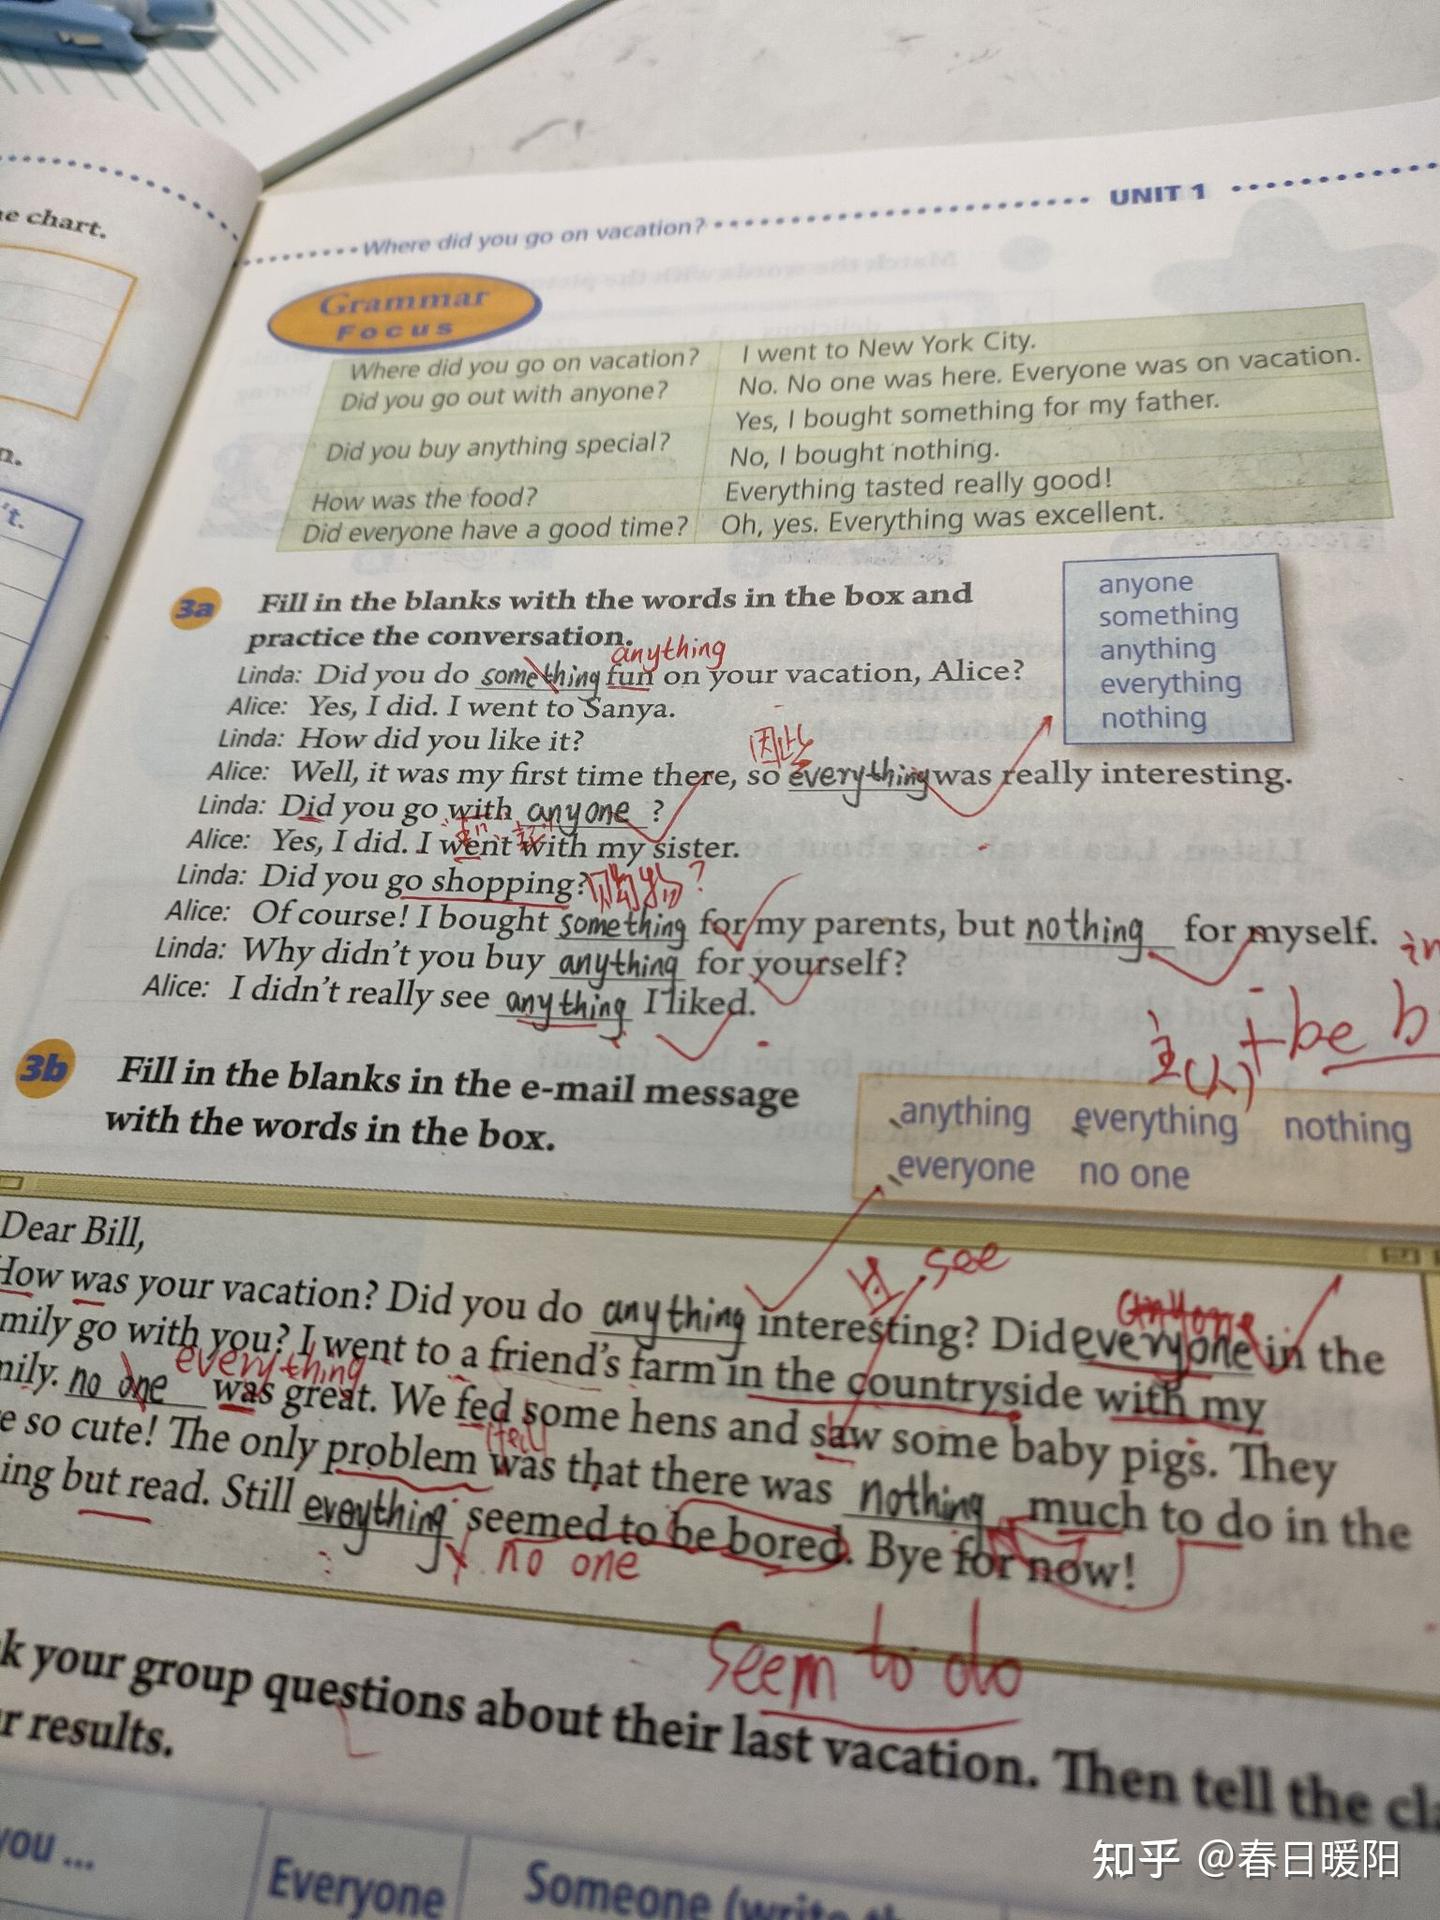 UNIT 1
Where did you go on vacation?
Grammar
Focus
Where did you go on vacation? I went to New York City.
Did you go out with anyone? No. No one was here. Everyone was on vacation.
Did you buy anything special? Yes, I bought something for my father.
No, I bought nothing.
How was the food? Everything tasted really good!
Did everyone have a good time? Oh, yes. Everything was excellent.
e chart.
n.
't.
3a Fill in the blanks with the words in the box and
practice the conversation.
anyone
something
anything
everything
nothing
anything
Linda: Did you do something fun on your vacation, Alice?
Alice: Yes, I did. I went to Sanya.
Linda: How did you like it?
因此
Alice: Well, it was my first time there, so everything was really interesting.
Linda: Did you go with anyone ?
Alice: Yes, I did. I went with my sister.
Linda: Did you go shopping? 购物?
Alice: Of course! I bought something for my parents, but nothing for myself.
Linda: Why didn't you buy anything for yourself?
Alice: I didn't really see anything I liked.
in
主(人)+be b
3b Fill in the blanks in the e-mail message
with the words in the box.
anything everything nothing
everyone no one
Dear Bill,
see
anyone
How was your vacation? Did you do anything interesting? Did everyone in the
mily go with you? I went to a friend's farm in the countryside with my
everything
nily. no one was great. We fed some hens and saw some baby pigs. They
e so cute! The only problem was that there was nothing much to do in the
ing but read. Still eveything seemed to be bored. Bye for now!
no one
seem to do
k your group questions about their last vacation. Then tell the cla
r results.
you ...
Everyone
Someone (write th
知乎 @春日暖阳